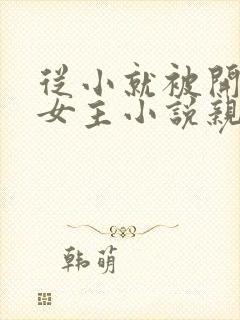 從小就被開
女主小說親
韩萌